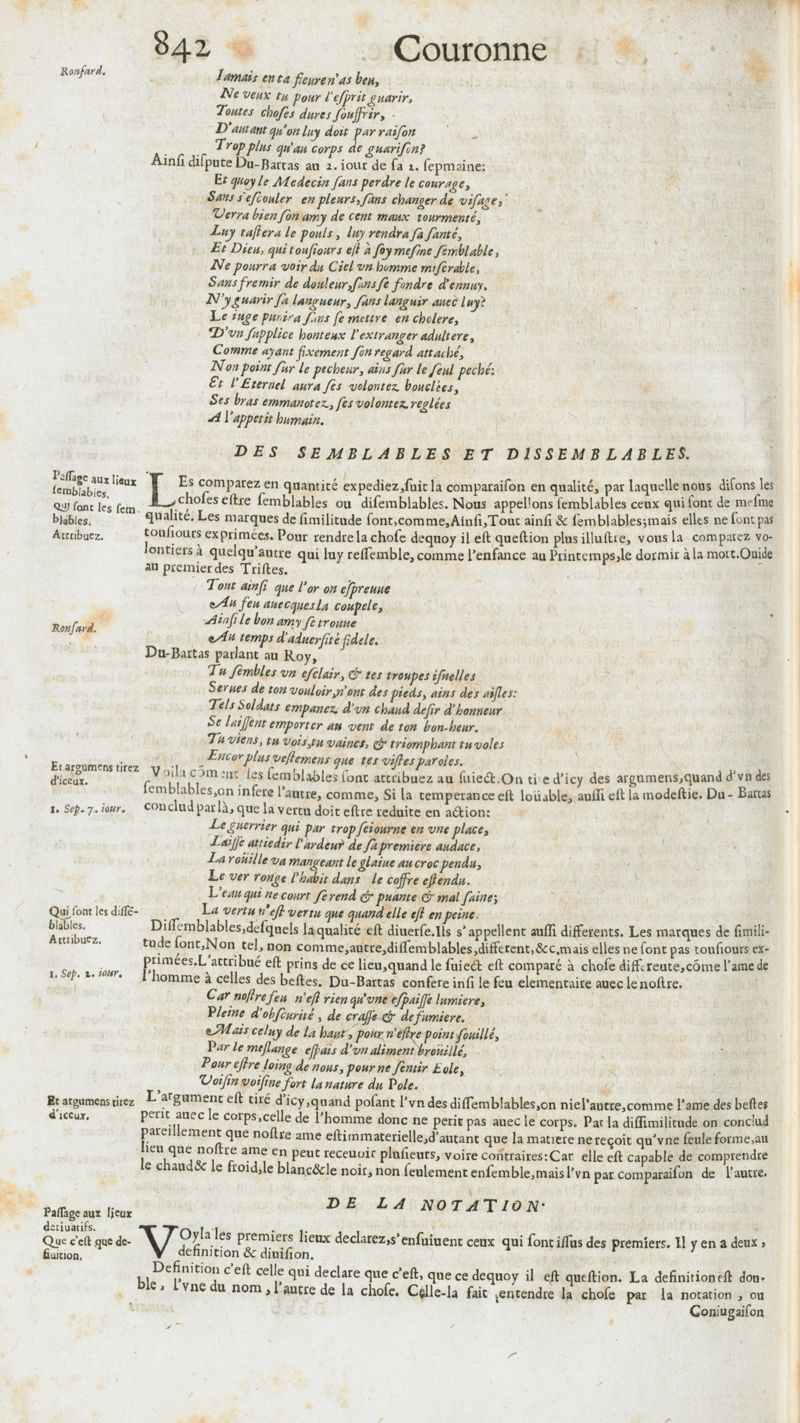 842 Couronne
Ronſard.
Iamais en ta fieure n'as beu,
Ne veux tu pour l'eſprit guarir,
Toutes choſes dures ſouffrir,
D'autant qu'on luy doit par raiſon
Trop plus qu'au corps de guariſon?
Ainſi diſpute Du-Bartas au 2. iour de ſa 2. ſepmaine:
Et quoy le Medecin ſans perdre le courage,
Sans s'eſcouler en pleurs, ſans changer de viſage,
Verra bien ſon amy de cent maux tourmenté,
Luy taſtera le pouls, luy rendra ſa ſanté,
Et Dieu, qui touſiours eſt à ſoy meſme ſemblable,
Ne pourra voir du Ciel vn homme miſerable,
Sans fremir de douleur, ſans ſe fondre d'ennuy,
N'y guarir ſa langueur, ſans languir auec luy?
Le iuge punira ſans ſe mettre en cholere,
D'vn ſupplice honteux l'extranger adultere,
Comme ayant fixement ſon regard attaché,
Non point ſur le pecheur, ains ſur le ſeul peché:
Et l'Eternel aura ſes volontez bouclées,
Ses bras emmanotez, ſes volontez reglées
A l'appetit humain.
DES SEMBLABLES ET DISSEMBLABLES.
Paſſage aux lieux
ſemblables.
Qui ſont les ſem-
blables.
Attribuez.
LEs comparez en quantité expediez, ſuit la comparaiſon en qualité, par laquelle nous diſons les
choſes eſtre ſemblables ou diſemblables. Nous appellons ſemblables ceux qui ſont de meſme
qualité. Les marques de ſimilitude ſont, comme, Ainſi, Tout ainſi & ſemblables; mais elles ne ſont pas
touſiours exprimées. Pour rendre la choſe dequoy il eſt queſtion plus illuſtre, vous la comparez vo-
lontiers à quelqu'autre qui luy reſſemble, comme l'enfance au Printemps, le dormir à la mort. Ouide
au premier des Triſtes.
Tout ainſi que l'or on eſpreuue
Au feu auecques la coupele,
Ainſi le bon amy ſe trouue
Ronſard.
Au temps d'aduerſité fidele.
Du-Bartas parlant au Roy,
Tu ſembles vn eſclair, & tes troupes iſnelles
Serues de ton vouloir, n'ont des pieds, ains des aiſles:
Tels Soldats empanez d'vn chaud deſir d'honneur
Se laiſſent emporter au vent de ton bon-heur.
Tu viens, tu vois, tu vaincs, & triomphant tu voles
Encor plus veſtemens que tes viſtes paroles.
Et argumens tirez
d'iceux.
1. Sep. 7. iour.
Voila comment les ſemblables ſont attribuez au ſuiect. On tire d'icy des argumens, quand d'vn des
ſemblables, on infere l'autre, comme, Si la temperance eſt loüable, auſſi eſt la modeſtie. Du-Bartas
conclud par là, que la vertu doit eſtre reduite en action:
Le guerrier qui par trop ſeiourne en vne place,
Laiſſe attiedir l'ardeur de ſa premiere audace,
La roüille va mangeant le glaiue au croc pendu,
Le ver ronge l'habit dans le coffre eſtendu.
L'eau qui ne court ſe rend & puante & mal ſaine;
La vertu n'eſt vertu que quand elle eſt en peine.
Qui ſont les diſſe-
blables.
Attribuez.
1. Sep. 2. iour.
Diſſemblables, deſquels la qualité eſt diuerſe. Ils s'appellent auſſi differents. Les marques de ſimili-
tude ſont, Non tel, non comme, autre, diſſemblables, different, &c. mais elles ne ſont pas touſiours ex-
primées. L'attribué eſt prins de ce lieu, quand le ſuiect eſt comparé à choſe differente, cõme l'ame de
l'homme à celles des beſtes. Du-Bartas confere inſi le feu elementaire auec le noſtre.
Car noſtre feu n'eſt rien qu'vne eſpaiſſe lumiere,
Pleine d'obſcurité, de craſſe & de fumiere.
Mais celuy de la haut, pour n'eſtre point ſouillé,
Par le meſlange eſpais d'vn aliment broüillé,
Pour eſtre loing de nous, pour ne ſentir Eole,
Voiſin voiſine fort la nature du Pole.
Et argumens tirez
d'iceux.
L'argument eſt tiré d'icy, quand poſant l'vn des diſſemblables, on nie l'autre, comme l'ame des beſtes
perit auec le corps, celle de l'homme donc ne perit pas auec le corps. Par la diſſimilitude on conclud
pareillement que noſtre ame eſt immaterielle, d'autant que la matiere ne reçoit qu'vne ſeule forme, au
lieu que noſtre ame en peut receuoir pluſieurs, voire contraires: Car elle eſt capable de comprendre
le chaud & le froid, le blanc & le noir, non ſeulement enſemble, mais l'vn par comparaiſon de l'autre.
DE LA NOTATION.
Paſſage aux lieux
deriuatifs.
Que c'eſt que de-
finition.
VOyla les premiers lieux declarez, s'enſuiuent ceux qui ſont iſſus des premiers. Il y en a deux,
definition & diuiſion.
Definition c'eſt celle qui declare que c'eſt, que ce dequoy il eſt queſtion. La definition eſt dou-
ble, l'vne du nom, l'autre de la choſe. Celle-la fait entendre la choſe par la notation, ou
Coniugaiſon